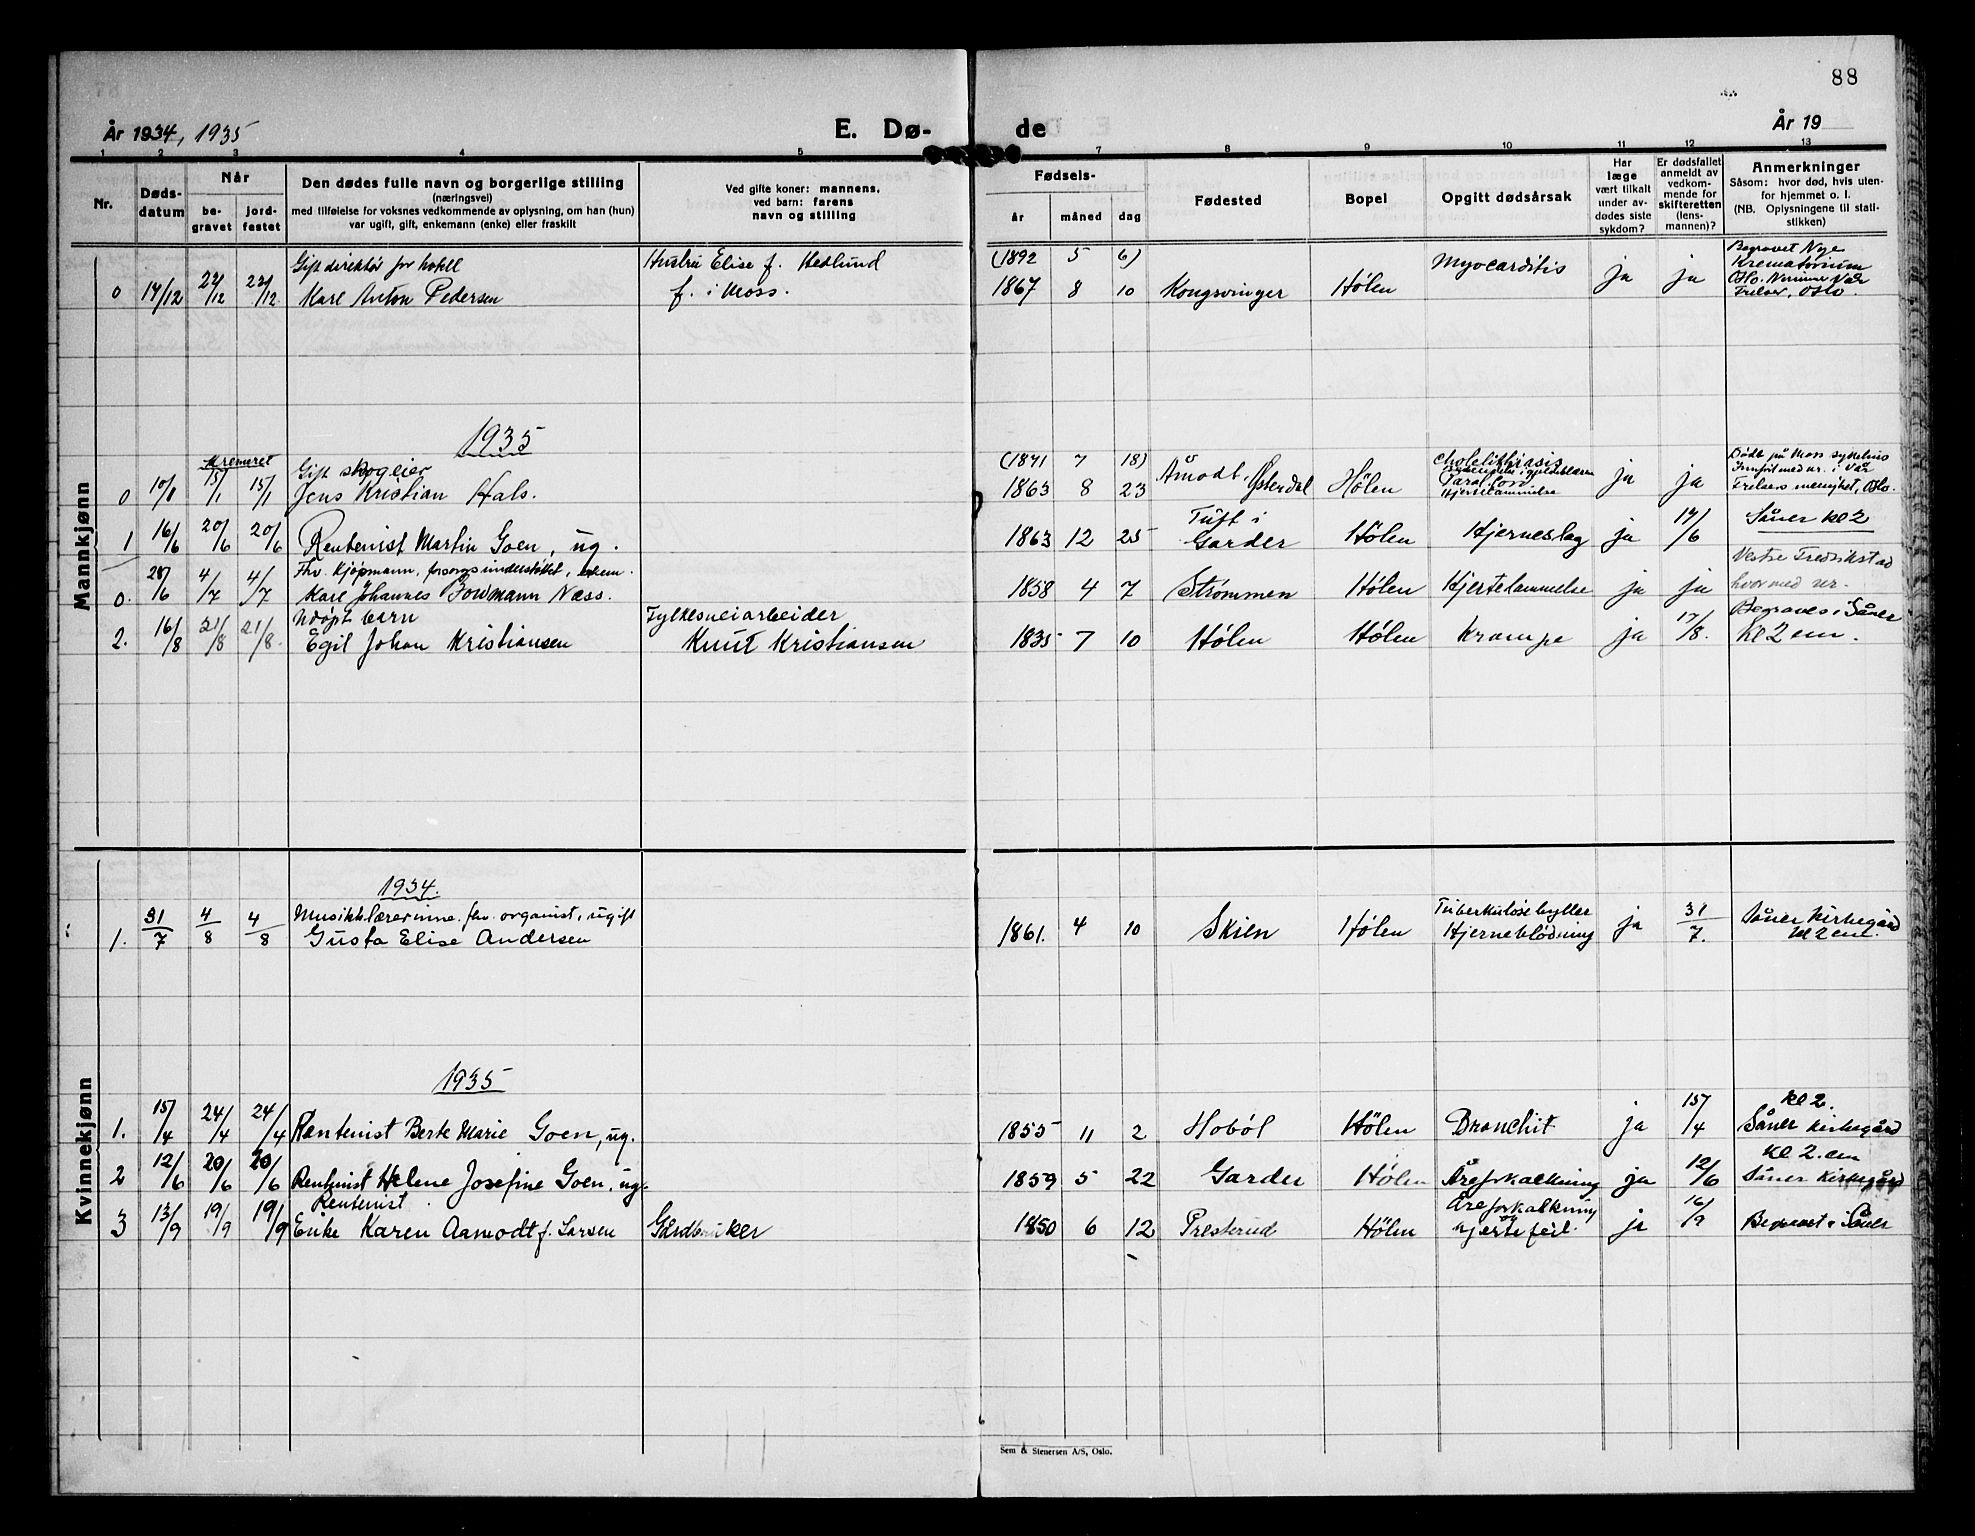 88
År 1934, 1935
E. Dø- de
År 19
1 2 3 4 5 7 8 9 10 11 12 13
Nr.
Døds-
datum
Når
be-
gravet
jord-
festet
Den dødes fulle navn og borgerlige stilling
(næringsvei)
med tilføielse for voksnes vedkommende av oplysning, om han (hun)
var ugift, gift, enkemann (enke) eller fraskilt
Ved gifte koner: mannens,
ved barn: farens
navn og stilling
Fødsels-
år måned dag
Fødested
Bopel
Opgitt dødsårsak
Har
læge
vært tilkalt
under av-
dødes siste
sykdom?
Er dødsfallet
anmeldt av
vedkom-
mende for
skifteretten
(lens-
mannen)?
Anmerkninger
Såsom: hvor død, hvis uten-
for hjemmet o. l.
(NB. Oplysningene til stati-
stikken)
Mannkjønn
Gift direktør for hotell Hustru Elise f. Hedlund (1892 5 6) Myocarditis Begravet Nye
0 17/12 22/12 22/12 Karl Anton Pedersen f. i Moss. 1867 8 10 Kongsvinger Hølen ja ja Krematorium
Oslo.
Frelser, Oslo.
1935
Kremeret
Gift skogeier (1871 7 18) Åmodt, Østerdal Cholelithiasis Død på Moss sykehus
0 10/1 15/1 15/1 Jens Kristian Hals. 1863 8 23 Hølen Hjertelammelse ja ja
Frelsers menighet, Oslo.
1 16/6 20/6 20/6 Rentenist Martin Goen, ug. 1863 12 25 Tuft i
Garder Hølen Hjerneslag ja 17/6 Såner kl 2
Fhv. Kjøpmann, forsorgsunderstøttet, enkem. Vestre Fredrikstad
0. 28/6 4/7 4/7 Karl Johannes Bowmann Næss. 1858 4 7 Strømmen Hølen Hjertelammelse ja ja
Udøpt barn Fylkesveiarbeider Begraves i Såner
2. 16/8 21/8 21/8. Egil Johan Kristiansen Knut Kristiansen 1835 7 10 Hølen Hølen Krampe ja 17/8. Kl 2 em.
Kvinnekjønn
1934.
Musikklærerinne. fhv. organist, ugift
1. 31/7 4/8 4/8 Gusta Elise Andersen 1861. 4 10 Skien Hølen Hjerneblødning ja 31/7. Såner Kirkegård
kl 2 em.
1935
1. 15/4 24/4 24/4 Rentenist Berte Marie Goen, ug. 1855 11 2 Hobøl Hølen Bronchit ja 15/4 kl 2.
Såner Kirkegård
2 12/6 20/6 20/6 Rentenist Helene Josefine Goen, ug. 1859 5 22 Garder Hølen Åreforkalkning ja 12/6 Kl 2. em
Såner Kirkegård
Rentenist. Åreforkalkning
3 13/9 19/9 19/9 Enke Karen Aamodt f. Larsen Gårdbruker 1850 6 12 Presterud Hølen og
hjertefeil. ja 16/9 Begravet i Såner
Sem & Stenersen A/S, Oslo.